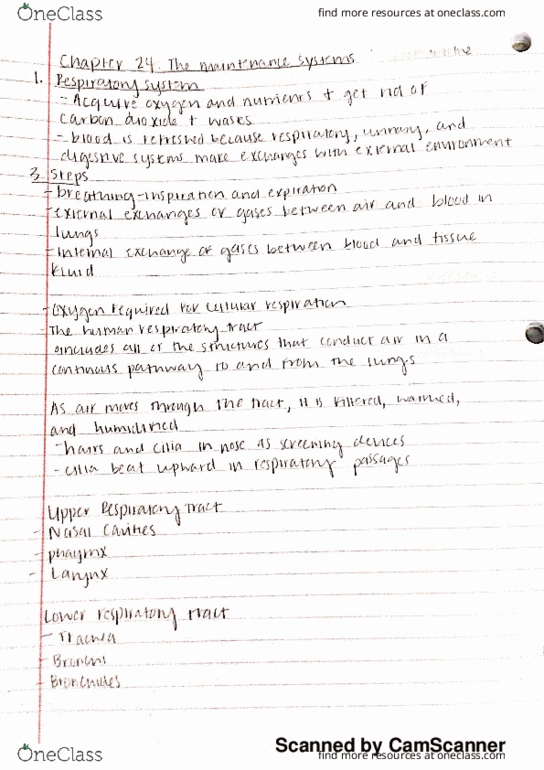 OneClass
find more resources at oneclass.com
Chapter 24. The maintenance systems
1. Respiratory system
- Acquire oxygen and nutrients + get rid of
carbon dioxide + wases
- blood is refreshed because respiratory, urinary, and
digestive systems make exchanges with external environment
3 Steps
- breathing - inspiration and expiration
- external exchanges of gases between air and blood in
lungs
- Internal exchange of gases between blood and tissue
fluid
- Oxygen required for cellular respiration
- The human respiratory tract
includes all of the structures that conduct air in a
continous pathway to and from the lungs
As air moves through the tract, it is filtered, warmed,
and humidified
- hairs and cilia in nose as screening devices
- cilia beat upward in respiratory passages
Upper Respiratory Tract
- Nasal Cavities
- pharynx
- Larynx
Lower respiratory tract
- Trachea
- Bronchi
- Bronchioles
Scanned by CamScanner
OneClass
find more resources at oneclass.com